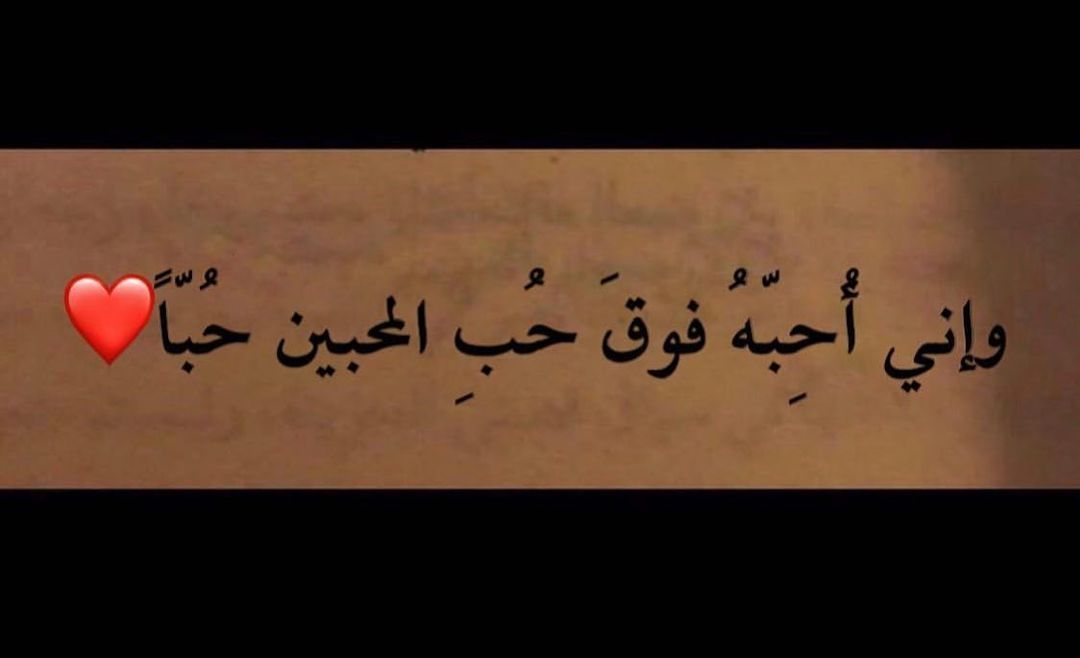 وإني أُحِبّهُ فوقَ حُبِ المحبين حُبّاً❤️